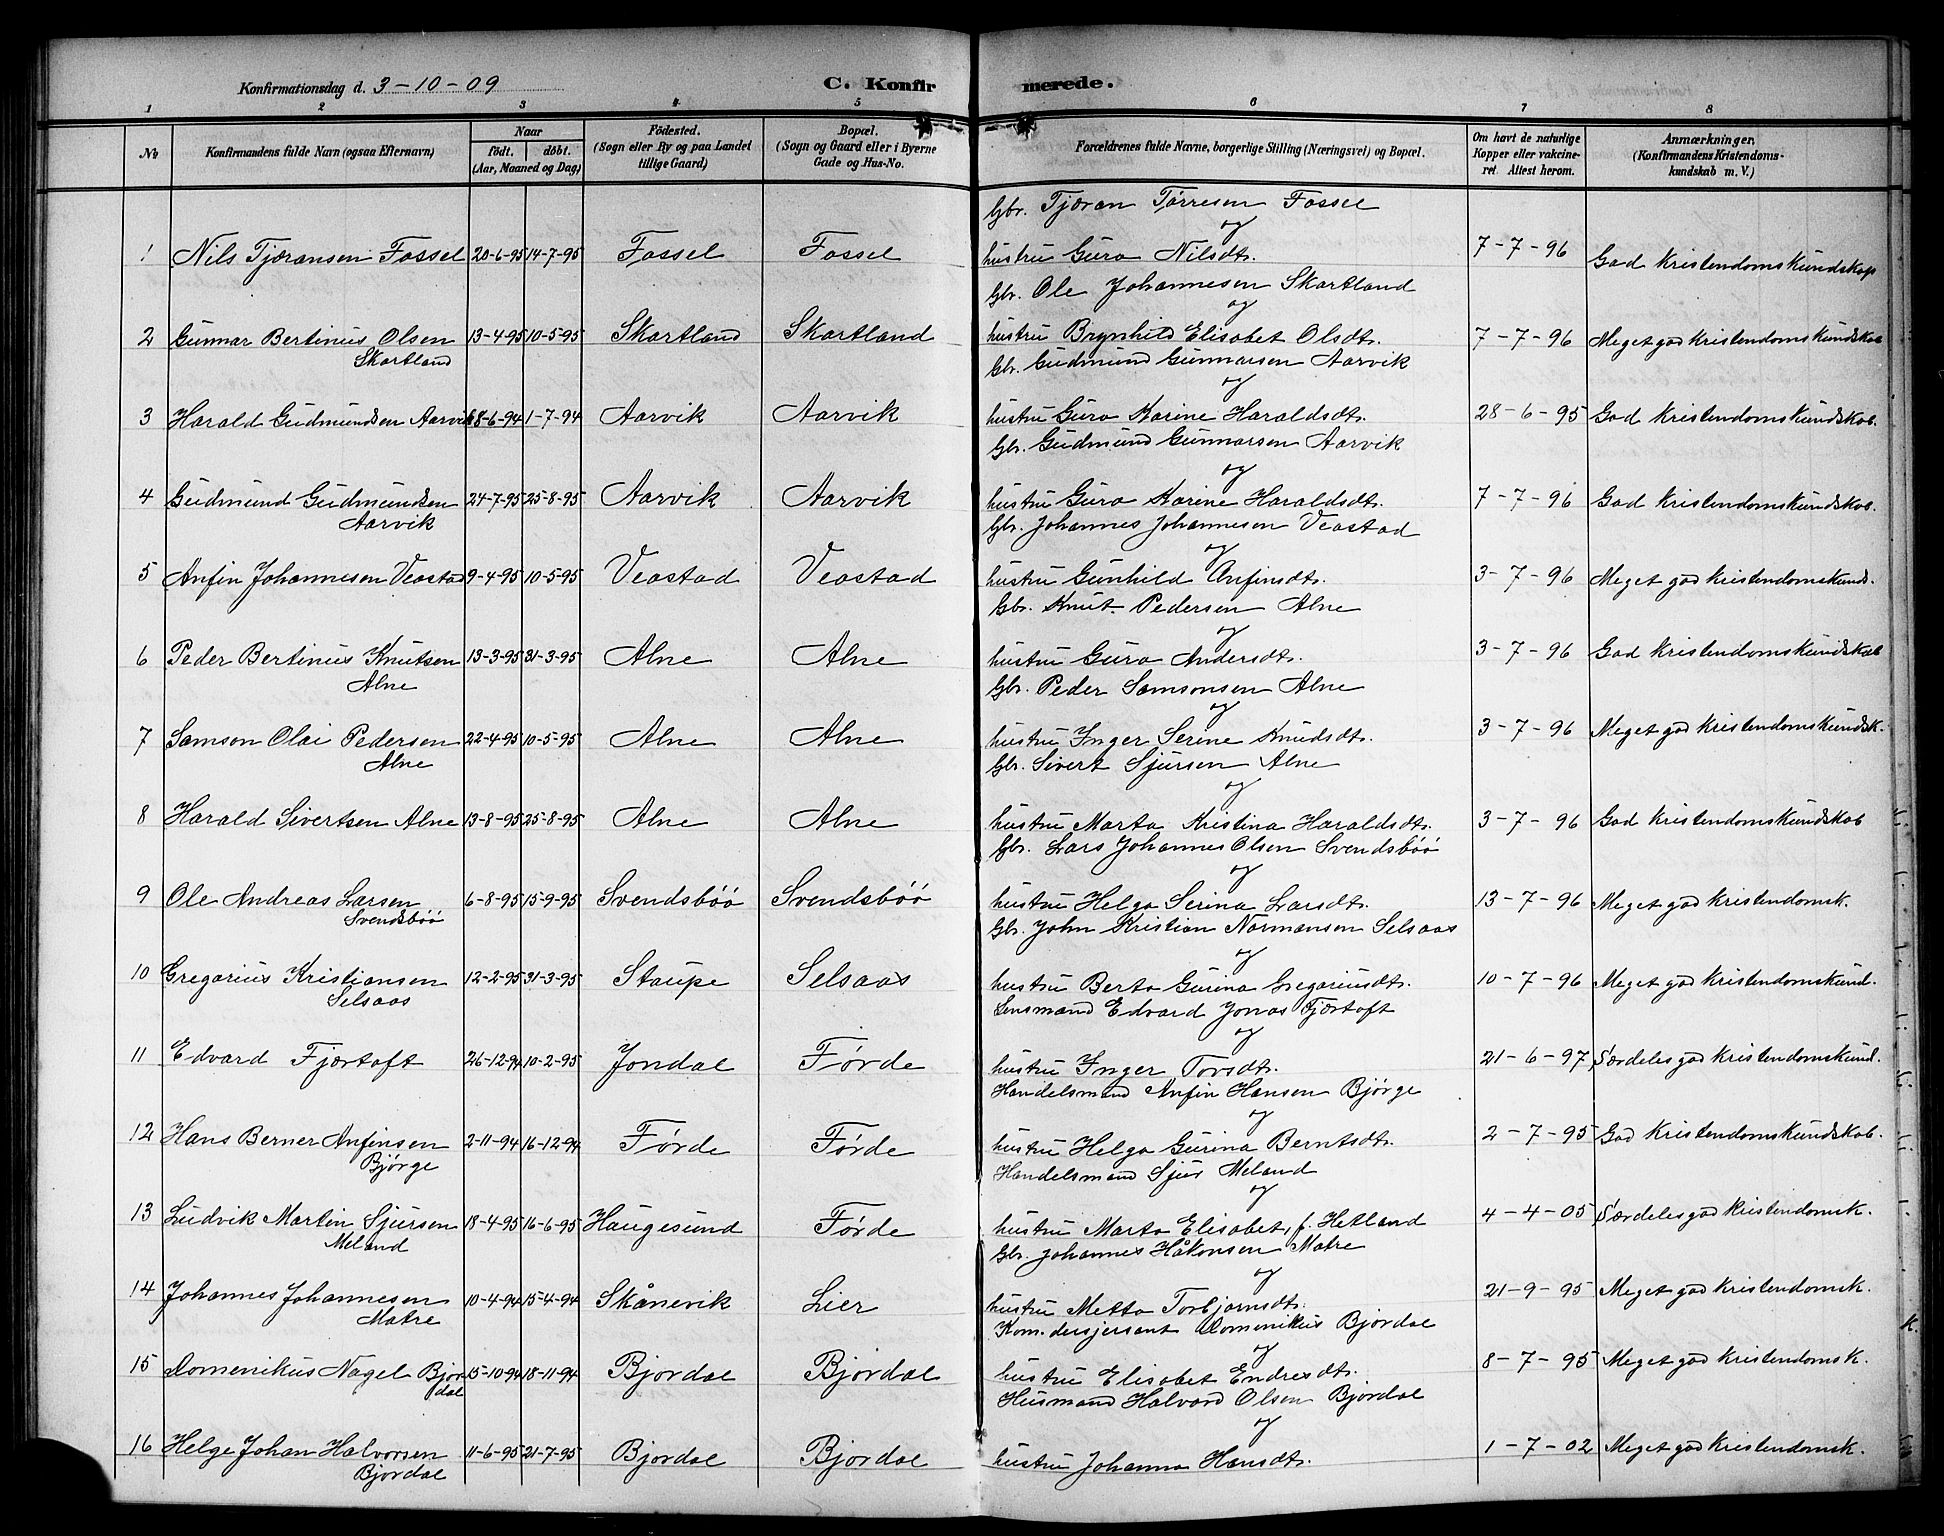 Konfirmationsdag d. 3-10-09 C. Konfirmerede.
1 2 3 4 5 6 7 8
No Konfirmandens fulde Navn (ogsaa Efternavn) Naar født. døbt. (Aar, Maaned og Dag) Födested. (Sogn eller By og paa Landet tillige Gaard) Bopæl. (Sogn og Gaard eller i Byerne Gade og Hus-No. Forældrenes fulde Navne, borgerlige Stilling (Næringsvei) og Bopæl. Om havt de naturlige Kopper eller vakcineret. Attest herom. Anmærkninger. (Konfirmandens Kristendomskundskab m. V.)
Gbr. Tjæran Tørresen Fossel
og
1 Nils Tjæransen Fossel 20-6-95 14-7-95 Fossel Fossel hustru Guro Nilsdt. 7-7-96 God Kristendomskundskap
Gbr. Ole Johannesen Skartland
og
2 Gunnar Bertinus Olsen 13-4-95 10-5-95 Skartland Skartland hustru Brynhild Elisabet Olsdt. 7-7-96 Meget god Kristendomskundskab
Skartland
Gbr. Gudmund Gunnarsen Aarvik
og
3 Harald Gudmundsen Aarvik 8-6-94 1-7-94 Aarvik Aarvik hustru Guro Karine Haraldsdt. 28-6-95 God Kristendomskundskab.
Gbr. Gudmund Gunnarsen Aarvik
og
4 Gudmund Gudmundsen 24-7-95 25-8-95 Aarvik Aarvik hustru Guro Karine Haraldsdt. 7-7-96 God Kristendomskundskab.
Aarvik
Gbr. Johannes Johannesen Veastad
og
5 Anfin Johannesen Veastad 9-4-95 10-5-95 Veastad Veastad hustru Gunhild Anfinsdt. 3-7-96 Meget god Kristendomskunds.
Gbr. Knut Pedersen Alne
og
6 Peder Bertinius Knutsen 13-3-95 31-3-95 Alne Alne hustru Guro Andersdt. 3-7-96 God Kristendomskundskab
Alne
Gbr. Peder Samsonsen Alne
og
7 Samson Olai Pedersen 22-4-95 10-5-95 Alne Alne hustru Inger Serine Knudsdt. 3-7-96 Meget god Kristendomskundsk.
Alne
Gbr. Sivert Sjursen Alne
og
8 Harald Sivertsen Alne 13-8-95 25-8-95 Alne Alne hustru Marta Kristina Haraldsdt. 3-7-96 God Kristendomskundskab
Gbr. Lars Johannes Olsen Svendsbøø
og
9 Ole Andreas Larsen 6-8-95 15-9-95 Svendsbøø Svendsbøø hustru Helga Serina Larsdt. 13-7-96 Meget god Kristendomsk.
Svendsbøø
Gbr. John Kristian Normansen Selsaas
og
10 Gregarius Kristiansen 12-2-95 31-3-95 Staupe Selsaas hustru Berta Gurina Gregariusdt. 10-7-96 Meget god Kristendomskund.
Selsaas
Lensmand Edvard Jonas Fjærtoft
og
11 Edvard Fjærtoft 26-12-94 10-2-95 Jondal Førde hustru Inger Torsdt. 21-6-97 Særdeles god Kristendomskund.
Handelsmand Anfin Hansen Bjørge
og
12 Hans Berner Anfinsen 2-11-94 16-12-94 Førde Førde hustru Helga Gurina Berntsdt. 2-7-95 God Kristendomskundskab.
Bjørge
Handelsmand Sjur Meland
og
13 Ludvik Martin Sjursen 18-4-95 16-6-95 Haugesund Førde hustru Marta Elisabet, f. Hetland 4-4-05 Særdeles god Kristendomsk.
Meland
Gbr. Johannes Håkonsen Matre
og
14 Johannes Johannesen 10-4-94 15-4-94 Skånevik Lier hustru Metta Torbjørnsdt. 21-9-95 Meget god Kristendomsk.
Matre
Kom.dersjersant Domenikus Bjordal
og
15 Domenikus Nagel Bjordal 15-10-94 18-11-94 Bjordal Bjordal hustru Elisabet Endresdt. 8-7-95 Meget god Kristendomsk.
Husmand Halvard Olsen Bjordal
og
16 Helge Johan Halvorsen 11-6-95 21-7-95 Bjordal Bjordal hustru Johanna Hansdt. 1-7-02 Meget god Kristendomsk.
Bjordal